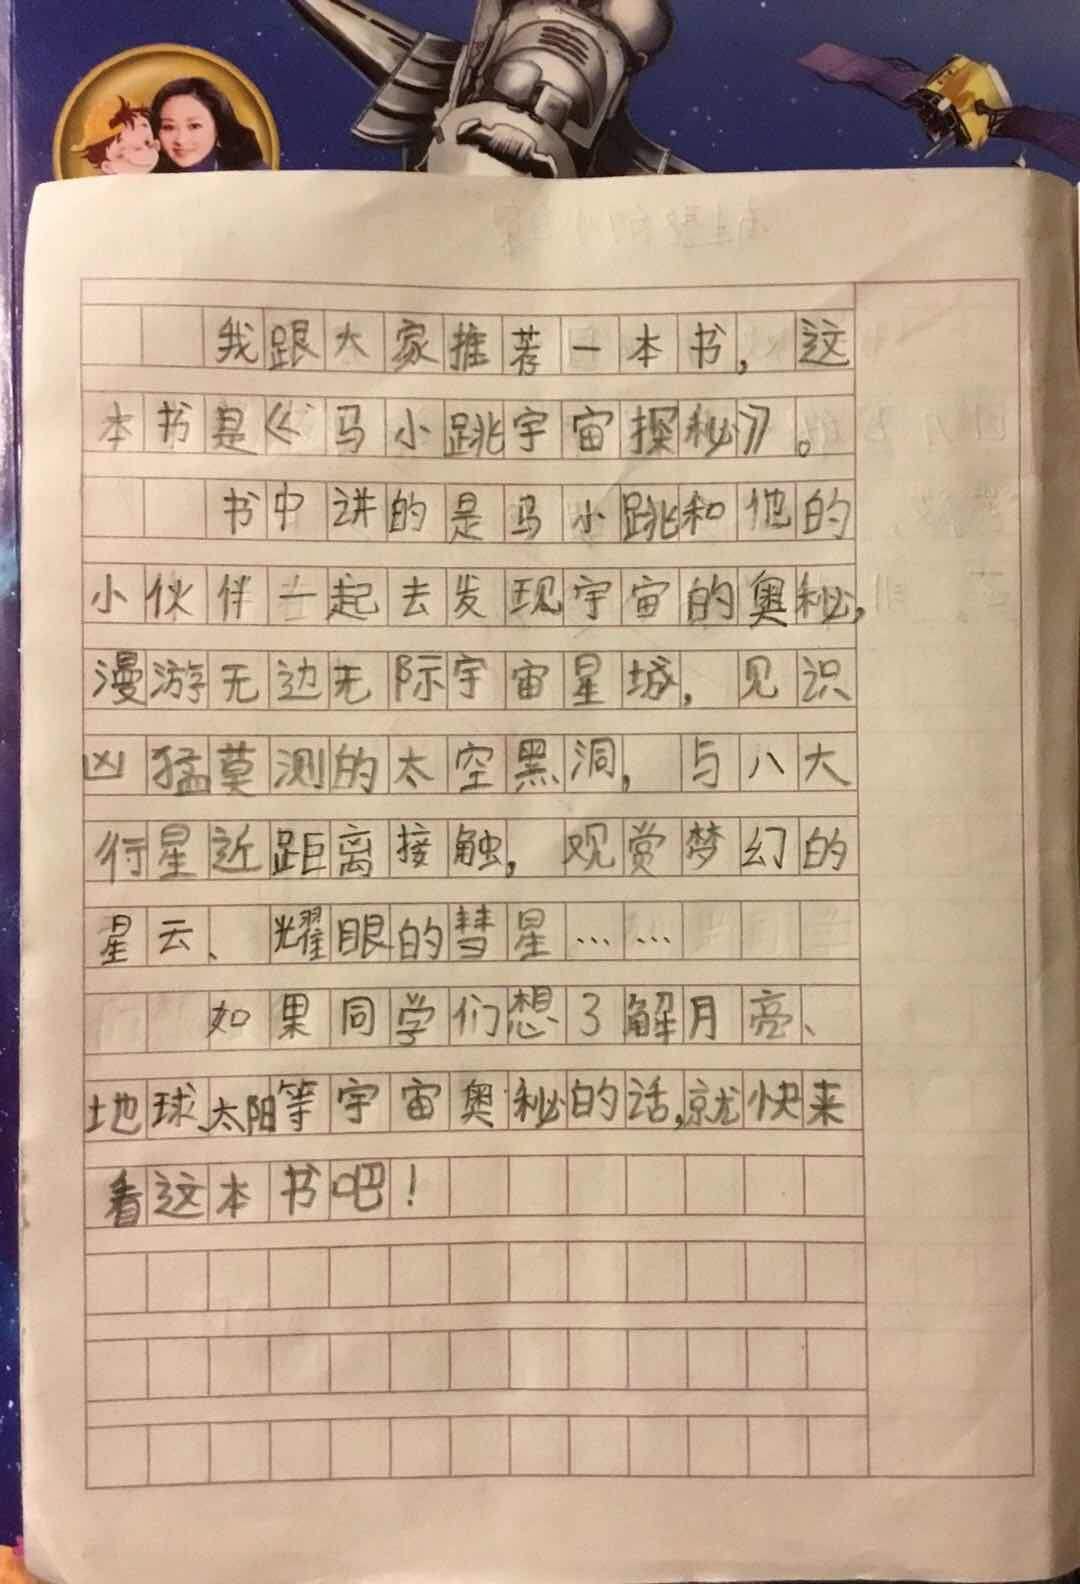 我跟大家推荐一本书，这
本书是《马小跳宇宙探秘》。
书中讲的是马小跳和他的
小伙伴一起去发现宇宙的奥秘，
漫游无边无际宇宙星城，见识
凶猛莫测的太空黑洞，与八大
行星近距离接触，观赏梦幻的
星云、耀眼的彗星……
如果同学们想了解月亮、
地球、太阳等宇宙奥秘的话，就快来
看这本书吧！